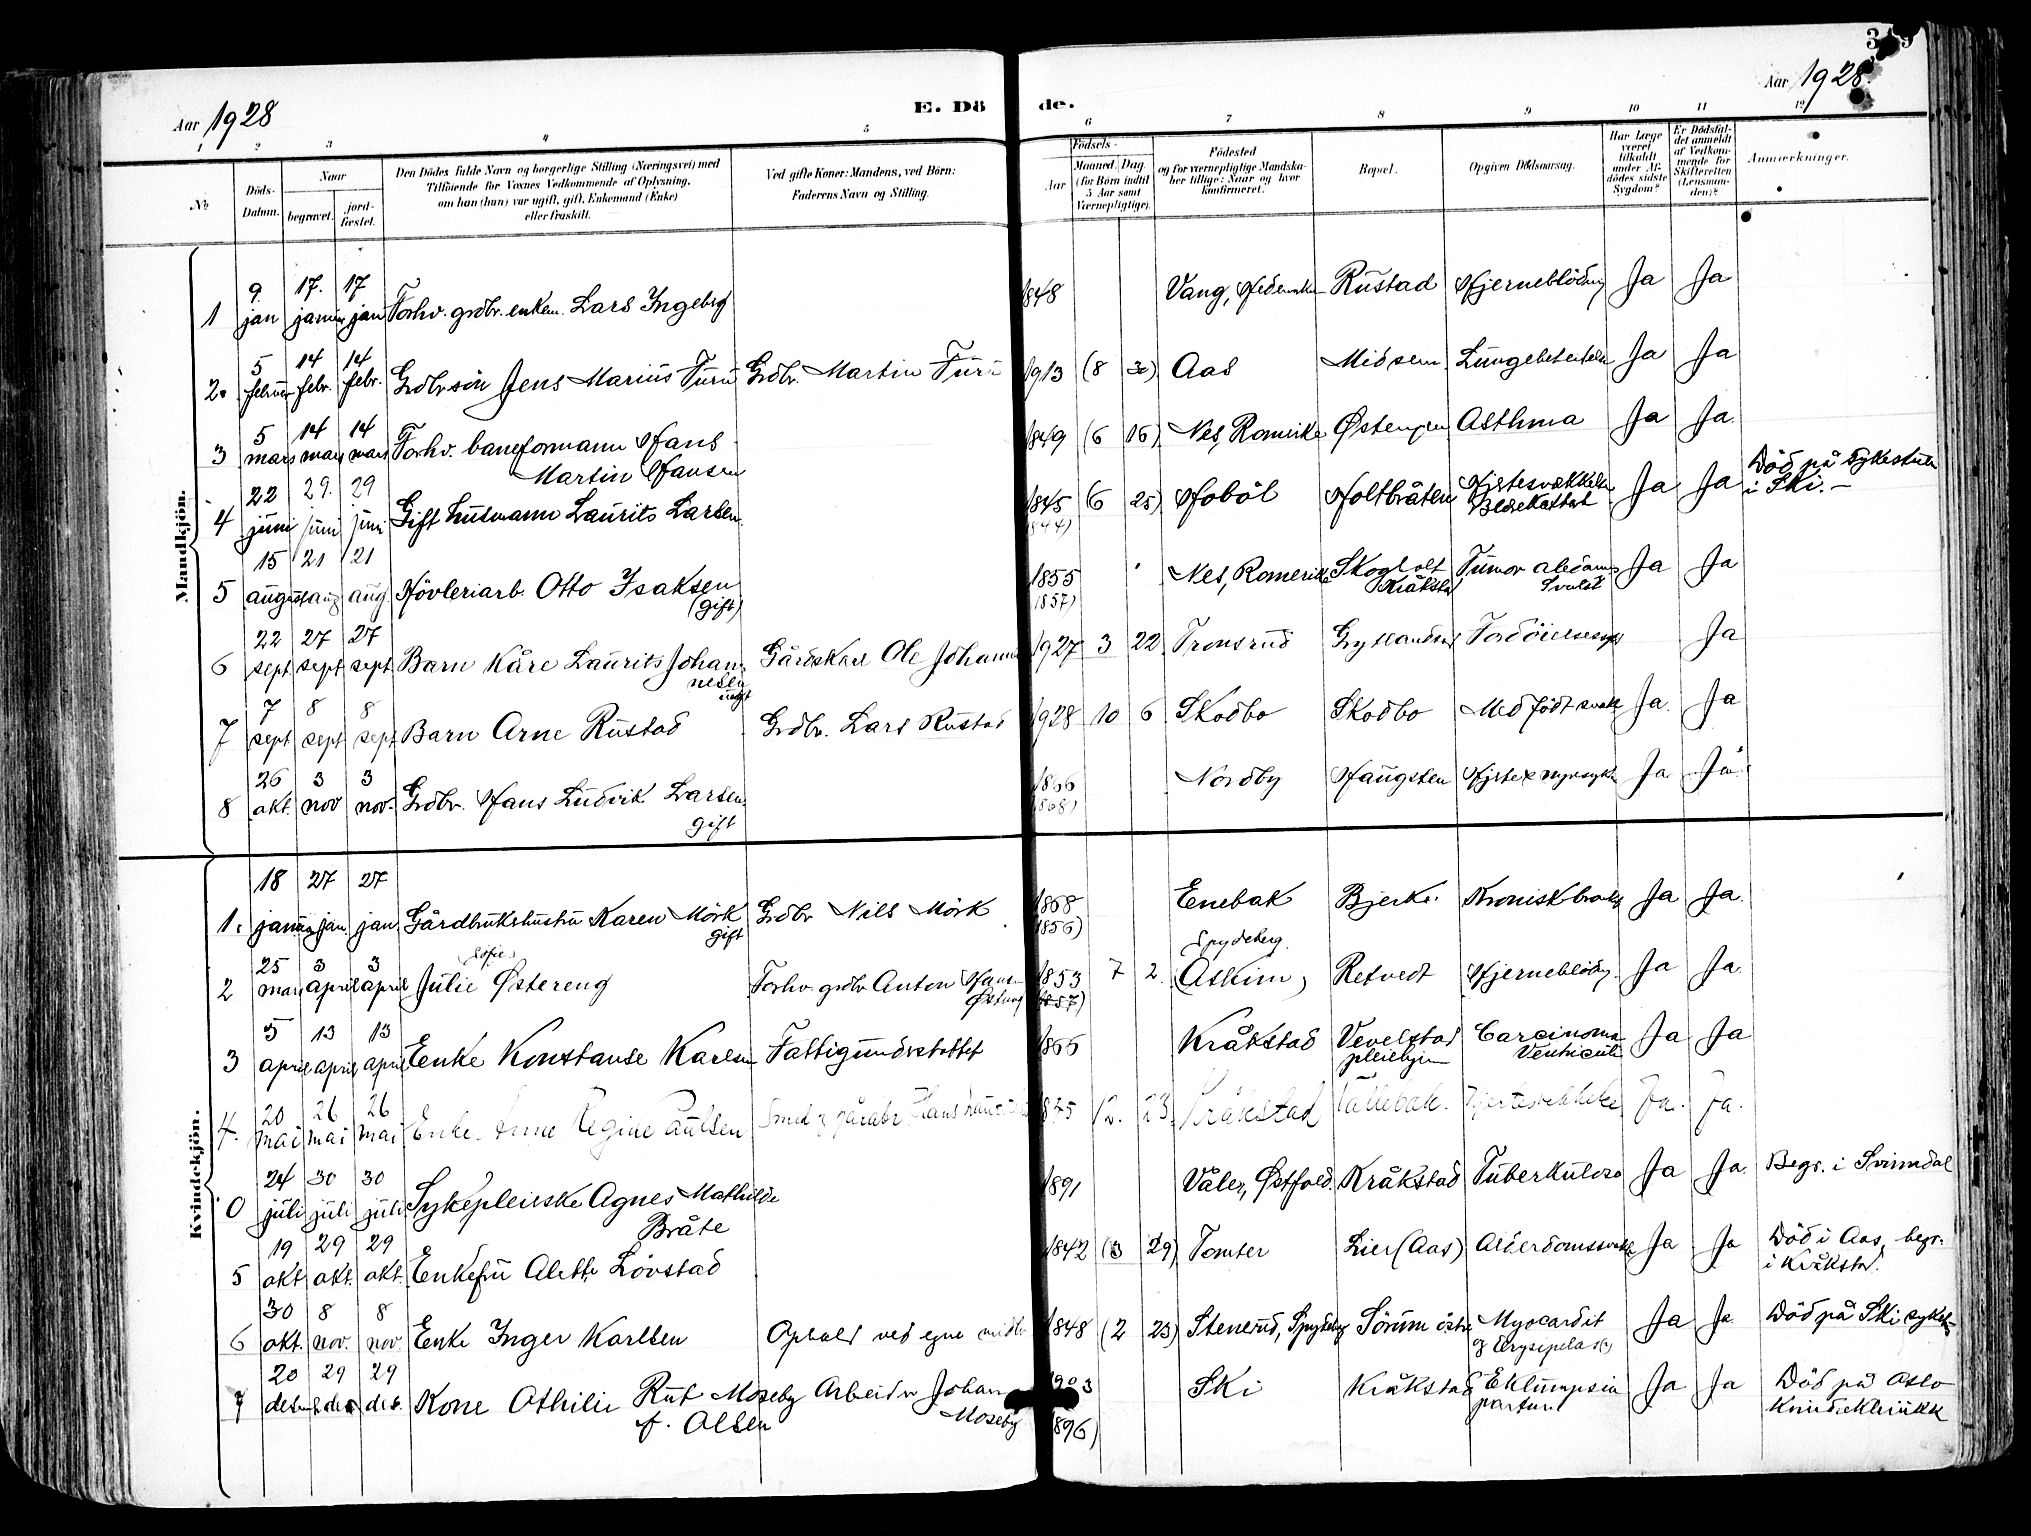 349
Aar 1928
E. Dö
de.
Aar 1928.
1 2 3 4 5 6 7 8 9 10 11 12
No
Döds-Datum.
Naar
begravet.
jord-fæstet.
Den Dödes fulde Navn og borgerlige Stilling (Næringsvei) med
Tilföiende for Voxnes Vedkommende af Oplysning,
om han (hun) var ugift, gift, Enkemand (Enke)
eller fraskilt.
Ved gifte Koner: Mandens, ved Börn:
Faderens Navn og Stilling.
Födsels-
Aar
Maaned. Dag.
(for Börn indtil
5 Aar samt
Værnepligtige).
Födested
og for værnepligtige Mandska-
ber tillige: Naar og hvor
konfirmeret.
Bopæl.
Opgiven Dödsaarsag.
Har Læge
været
tilkaldt
under Af-
dödes sidste
Sygdom?
Er Dödsfal-
det anmeldt
af Vedkom-
mende for
Skifteretten
(Lensman-
den)?
Anmærkninger.
Mandkjön.
1 9. jan 17. januar 17 jan Forhv. grdbr. enkem. Lars Ingeberg 1848 Vang, Hedemarken Rustad Hjerneblödng Ja Ja
2. 5 februar 14 febr. 14 febr. Grdbr sön Jens Marius Furu Grdbr. Martin Furu 1913 (8 30) Aas Midsem Lungebetendelse Ja Ja
3 5 mars 14 mars 14 mars Forhv. baneformann Hans
Martin Hansen 1849 (6 16) Nes, Romerike Østengen Asthma Ja Ja.
4 22 juni 29. juni 29 juni Gift husmann Laurits Larsen. 1845 (6 25) Hobøl Holtbråten Hjertesvækkelse
1844) Blærekatarr Ja Ja Död på Sykestuen
i Ski. —
5 15 august 21 aug 21 aug. Hövleriarb. Otto Isaksen
(gift) 1855 Nes, Romerike Skogholt Tumor abdom
1857) Kråkstad Svulst Ja Ja
6 22 sept 27 sept 27 sept Barn Kåre Laurits Johan-
nesen
ugift Gårdskarl Ole Johannes 1927 3 22 Tronsrud Ja
7 7 sept 8 sept 8 sept Barn Arne Rustad Grdbr. Lars Rustad 1928 10 6 Skodbo Skodbo Medfödt svakh Ja. Ja
8 26 okt. 3 nov 3 nov. Grdbr. Hans Ludvik Larsen
gift 1866 Nordby Haugsten Hjerte & nyresyke Ja Ja
1868)
Kvindekjön.
1. 18 januar 27 jan. 27 jan Gårdbrukshustru Karen Mörk
gift Grdbr Nils Mörk 1868 Enebak Bjerke. Kronisk bronk Ja Ja.
1856)
2 25 mars 3 april 3 april (Sofie)
Julie Østereng Forhv grdbr Anton Hansen
Østereng 1853 7 2. Spydeberg.
(Askim) Retvedt Hjerneblödn. Ja Ja.
1857)
3 5 april 13 april 13 april Eenke Konstanse Karlsen Fattigunderstöttet 1866 Kråkstad Vevelstad Carcinoma
pleiehjem Ventriculi Ja Ja
4. 20 mai 26 mai 26 mai Enke. Anne Regine Paulsen Smed og gårdbr Hans 1875 12. 23. Kråkstad Vållebæk. Hjertesvekkelse Ja. Ja.
0 24 juli 30 juli 30 juli Sykepleierske Agnes Mathilde
Bråte 1891 Våler, Østfold Kråkstad Tuberkulose Ja Ja. Begr. i Svinndal
5 19 okt 29 okt. 29 okt. Enkefru Alette Lövstad 1842 (3 29) Tomter Lier (Aas) Alderdomssvakh Ja Ja Död i Aas, begr.
i Kråkstad.
6 30 okt. 8 nov. 8 nov Enke Inger Karlsen Ophold ved egne midler 1848 (2 23) Stenerud, Spydeberg Sörum östre Myocardit
og Erysipelas(?) Ja Ja Död på Ski sykeh
7 20 desember 29 des 29 des. Kone Othilie Rut Moseby
f. Olsen Arbeider Johan
Moseby 1903 Ski Kråkstad Eklampsia
partur. Ja Ja Död på Oslo
Kvindeklinikk
1896)